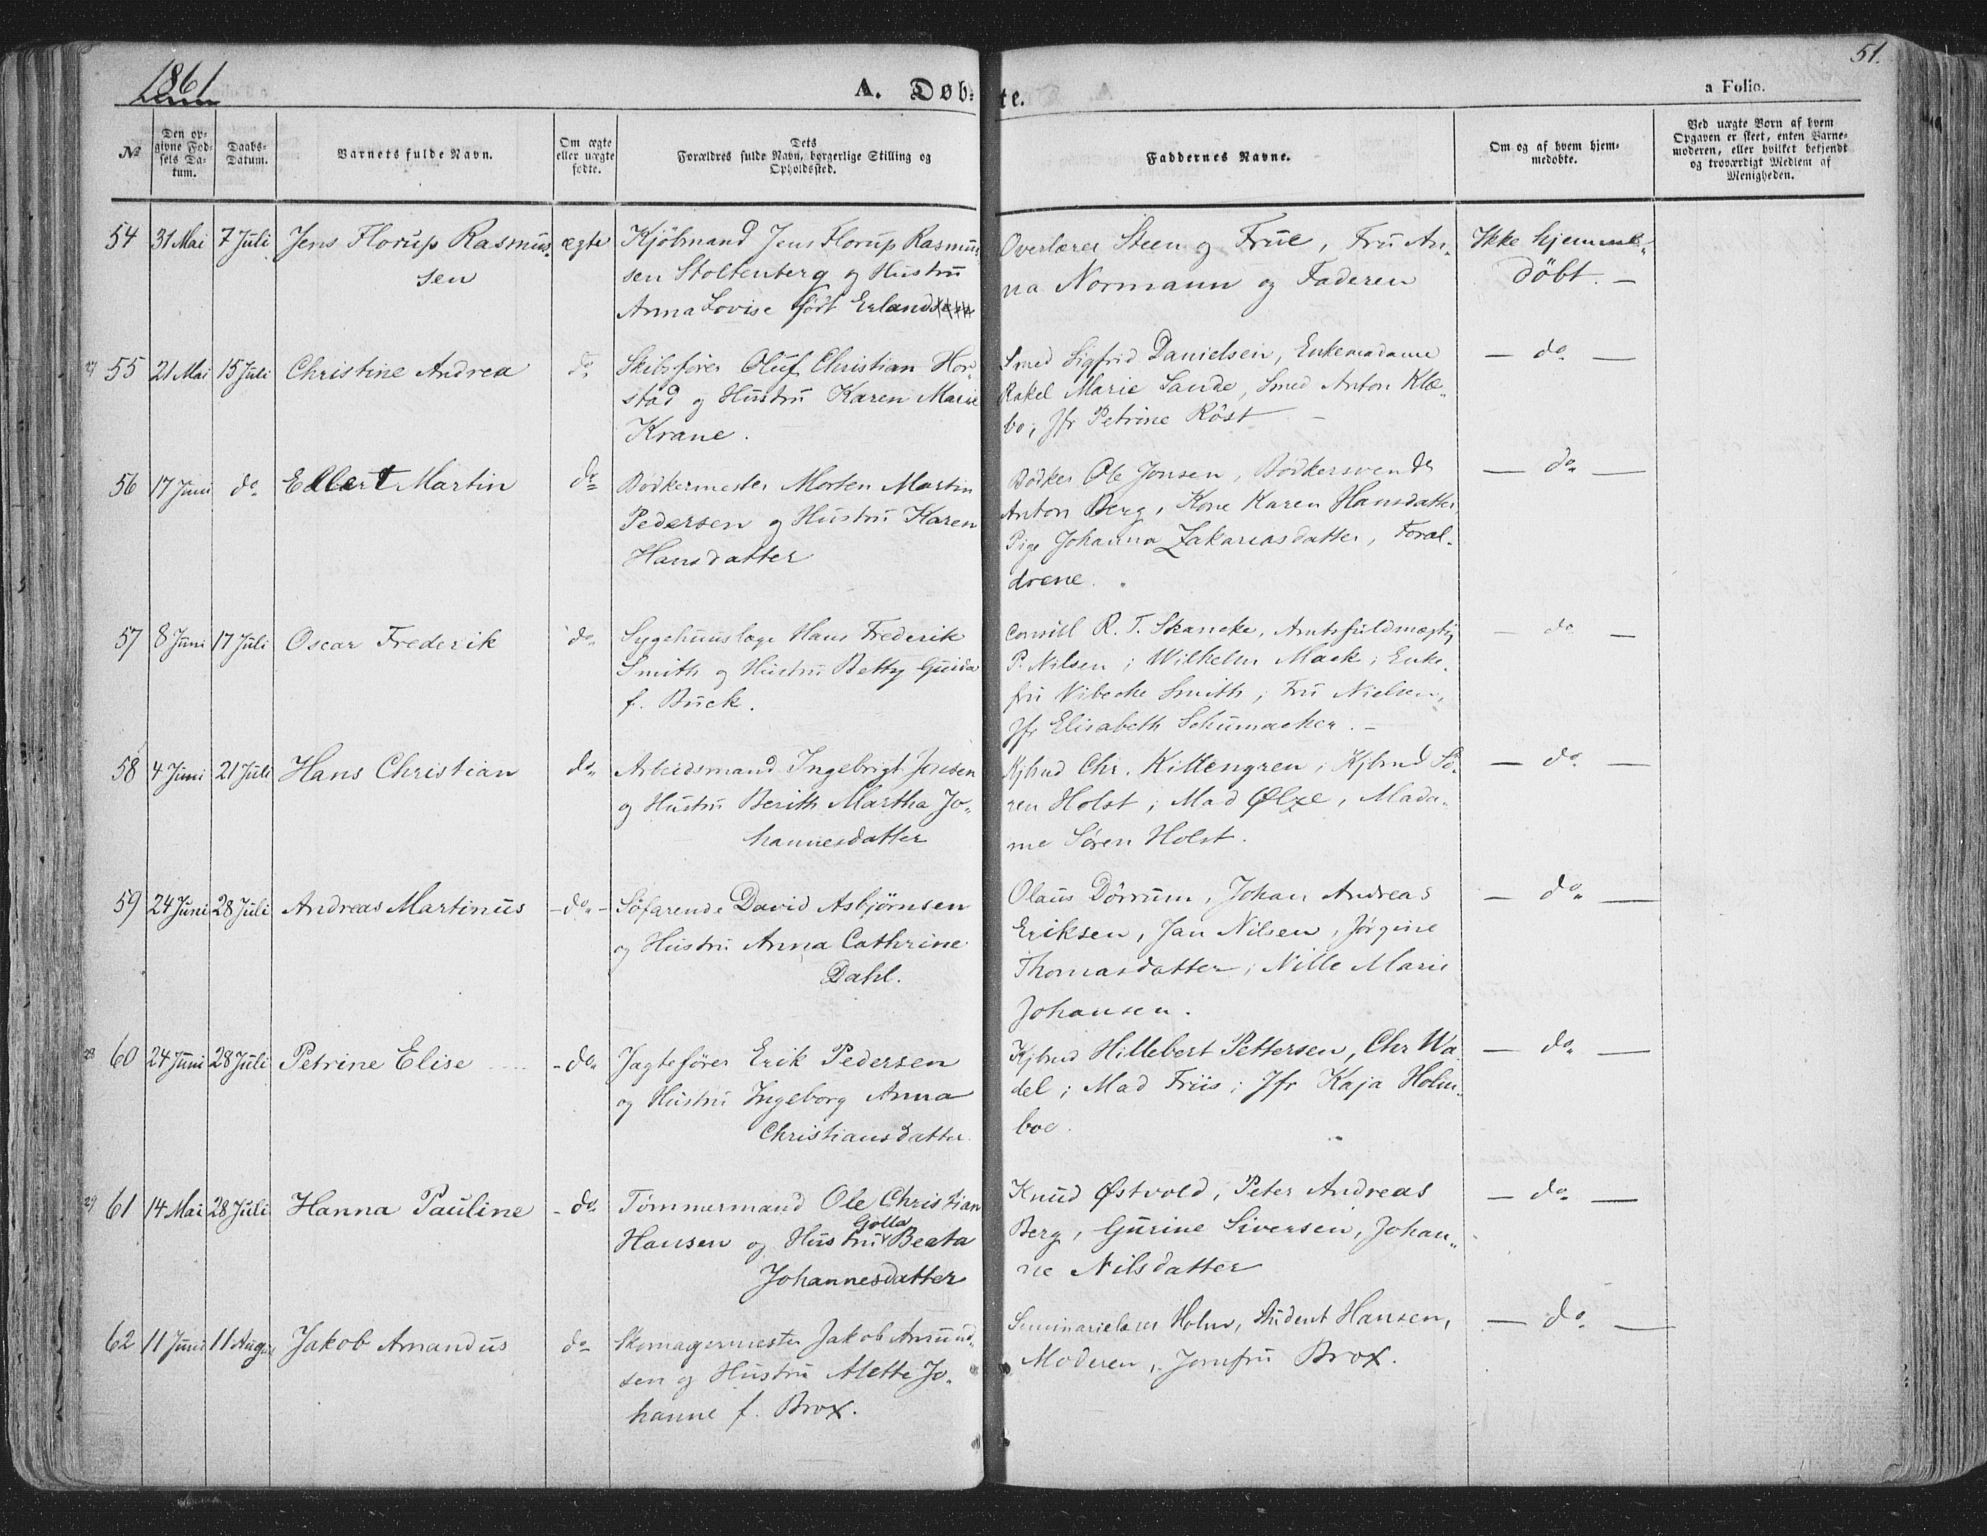 1861
51.
A. Døbte.
a Folio.
№
Den opgivne Fødsels Datum.
Daabs-Datum.
Barnets fulde Navn.
Om ægte eller uægte fødte.
Dets Forældres fulde Navn, borgerlige Stilling og Opholdssted.
Faddernes Navne.
Om og af hvem hjemmedøbte.
Ved uægte Børn af hvem Opgaven er skeet, enten Barnemoderen, eller hvilket bekjendt og troværdigt Medlem af Menigheden.
54 31 Mai 7 Juli Jens Florup Rasmus- ægte Kjöbmand Jens Florup Rasmus- Overlærer Steen og Frue, Fru An- Ikke hjemme-
sen sen Stoltenberg og Hustru na Normann og Faderen döbt. —
Anna Lovise födt Erlands
27 55 21 Mai 15 Juli Christine Andrea do Skibsförer Oluf Christian Hor- Smed Sigfrid Danielsen, Enkemadame — do —
stad og Hustru Karen Marie Rakel Marie Sande, Smed Anton Klæ-
Krane. bo, Jfr Petrine Röst —
56 17 Juni do Ellert Martin do Bödkermester Morten Martin Bödker Ole Jonsen, Bödkersvende — do —
Pedersen og Hustru Karen Anton Berg, Kone Karen Hansdatter,
Hansdatter Pige Johanna Zakariasdatter, Foræl-
drene.
57 8 Juni 17 Juli Oscar Frederik do Sygehuuslæge Hans Frederik Consul R. T. Skancke, Amtsfuldmægtig — do —
Smith og Hustru Betty Guida P. Nilsen; Wilhelm Mack; Enke-
f. Buck. fru Vibecke Smith; Fru Nielsen,
Jfr Elisabeth Schumacker. —
58 4 Juni 21 Juli Hans Christian do Arbeidsmand Ingebrigt Jensen Kjbmd Chr. Killengren; Kjbmd Sö- — do —
og Hustru Berith Martha Jo- ren Holst; Mad Ølze, Mada-
hannesdatter me Sören Holst.
59 24 Juni 28 Juli Andreas Martinus — do — Söfarende David Asbjørnsen Olaus Dörrum, Johan Andreas — do —
og Hustru Anna Cathrine Eriksen, Jan Nilsen, Jørgine
Dahl. Thomasdatter; Nille Marie
Johansen.
28 60 24 Juni 28 Juli Petrine Elise - do Jagteförer Erik Pedersen Kjbmd Hillebert Pettersen, Chr Wa- — do —
og Hustru Ingeborg Anna del; Mad Friis; Jfr Kaja Holm-
Christiansdatter boe.
29 61 14 Mai 28 Juli Hanna Pauline - do Tømmermand Ole Christian Knud Østvold, Peter Andreas — do —
Golla
Hansen og Hustru Beata Berg, Gurine Siversen, Johan-
Johannesdatter ne Nilsdatter
62 11 Juni 11 August Jakob Amandus do Skomagermester Jakob Amund- Seminarielærer Holm, Student Hansen, — do —
sen og Hustru Alette Jo- Moderen, Jomfru Brox.
hanne f. Brox.